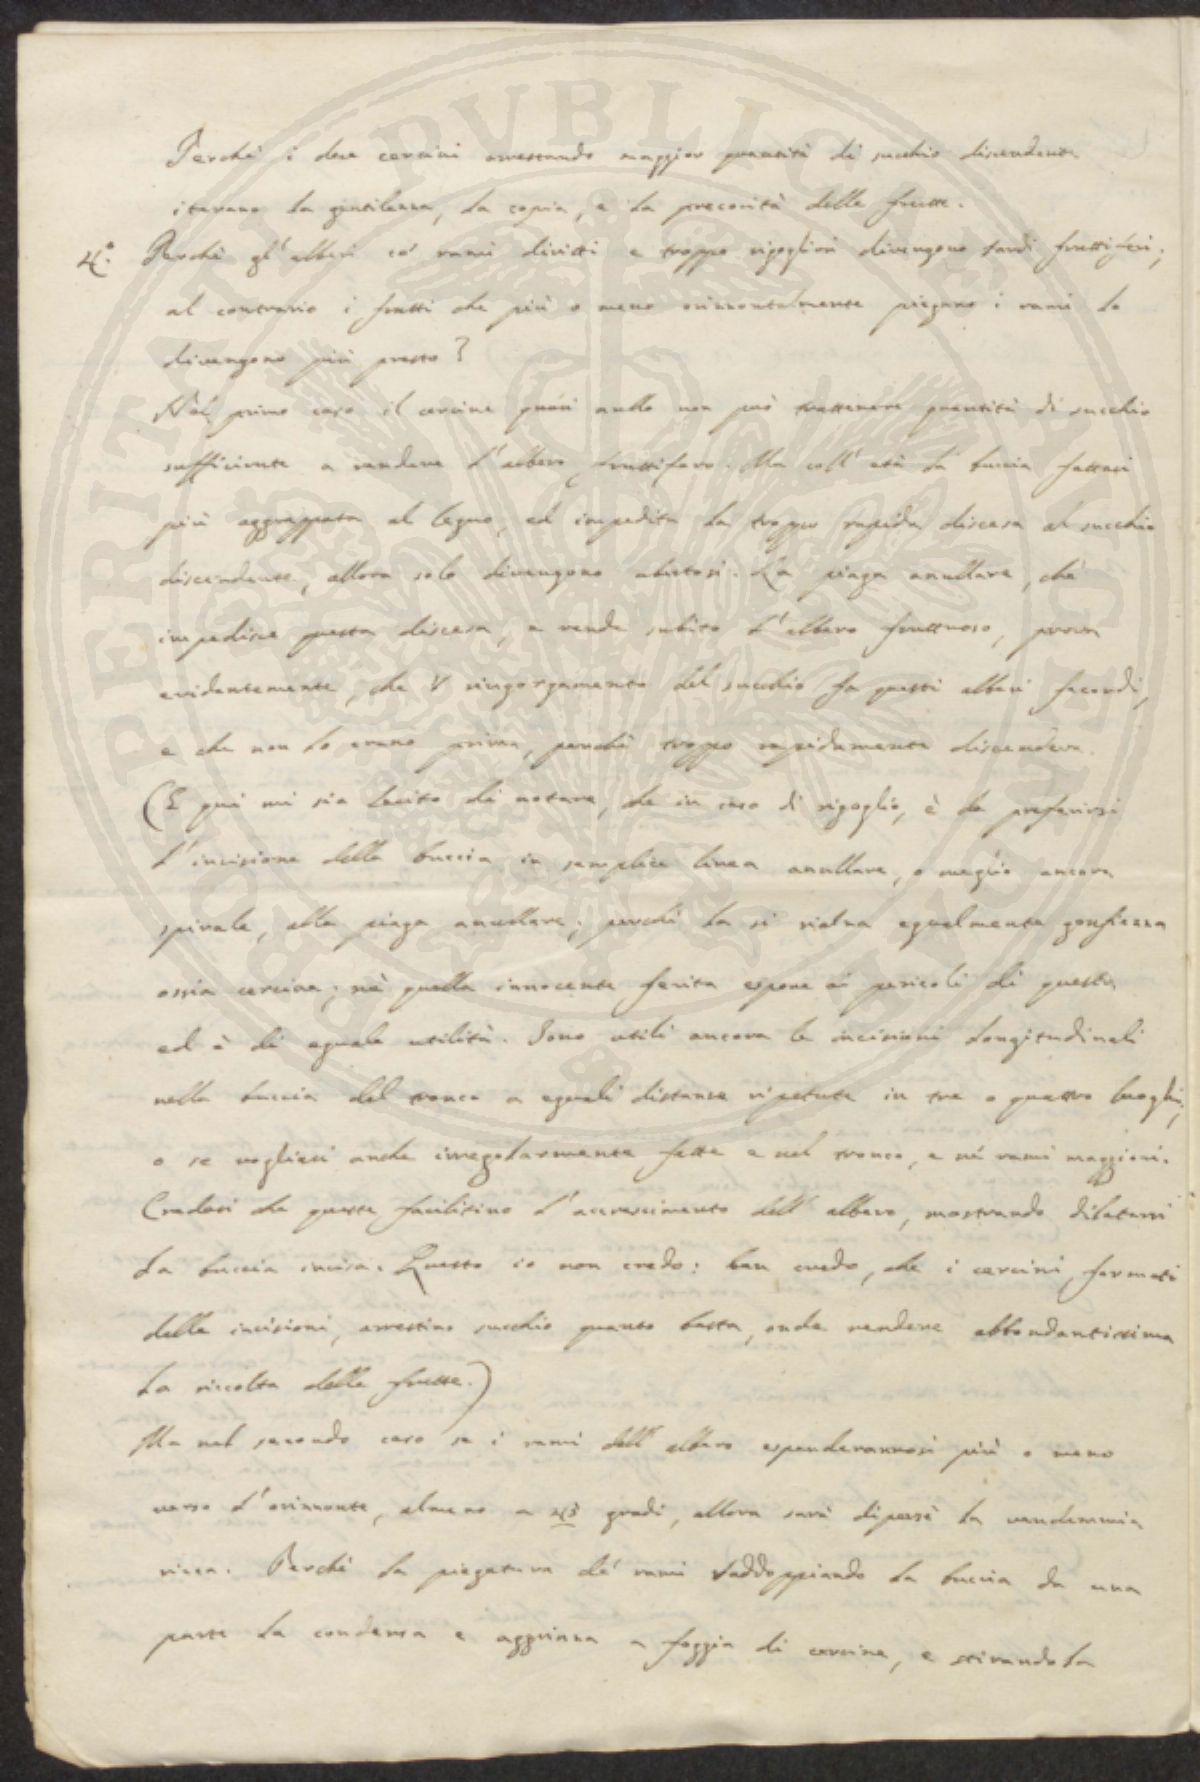 Perchè i due cercini arrestando maggior quantità di succhio discendente
iterano la gentilezza, la copia, e la precocità delle frutte.
4.° Perchè gl'alberi co' rami diritti e troppo rigogliosi divengono tardi fruttiferi;
al contrario i frutti che più o meno orizzontalmente piegano i rami lo
divengono più presto?
Nel primo caso il cercine quasi nullo non può trattenere quantità di succhio
sufficiente a rendere l'albero fruttifero. Ma coll'età la buccia fattasi
più aggrappata al legno, ed impedita la troppo rapida discesa al succhio
discendente, allora solo divengono ubertosi. La piaga anullare, che
impedisce questa discesa, e rende subito l'albero fruttuoso, prova
evidentemente, che l' ringorgamento del succhio fa questi alberi fecondi,
e che non lo erano prima, perchè troppo rapidamente discendeva.
(E qui mi sia lecito di notare, che in caso di rigoglio, è da preferirsi
l'incisione della buccia in semplice linea anullare, o meglio ancora
spirale, alla piaga anullare; perchè la si rialza egualmente gonfiezza
ossia cercine; nè quella innocente ferita espone ai pericoli di questa
ed è di eguale utilità. Sono utili ancora le incisioni longitudinali
nella buccia del tronco a eguali distanze ripetute in tre o quattro luoghi;
o se vogliasi anche irregolarmente fatte e nel tronco, e nè rami maggiori.
Credesi che queste facilitino l'accrescimento dell'albero, mostrando dilatarsi
la buccia incisa. Questo io non credo: ben credo, che i cercini, formati
dalle incisioni, arrestino succhio quanto basta, onde rendere abbondantissima
la ricolta delle frutte.)
Ma nel secondo caso se i rami dell'albero espanderannosi più o meno
verso l'orizzonte, almeno a 45 gradi, allora sarà dipersè la vendemmia
ricca. Perchè la piegatura de' rami raddoppiando la buccia da una
parte la condensa e aggrinza a foggia di cercine, e stirandola